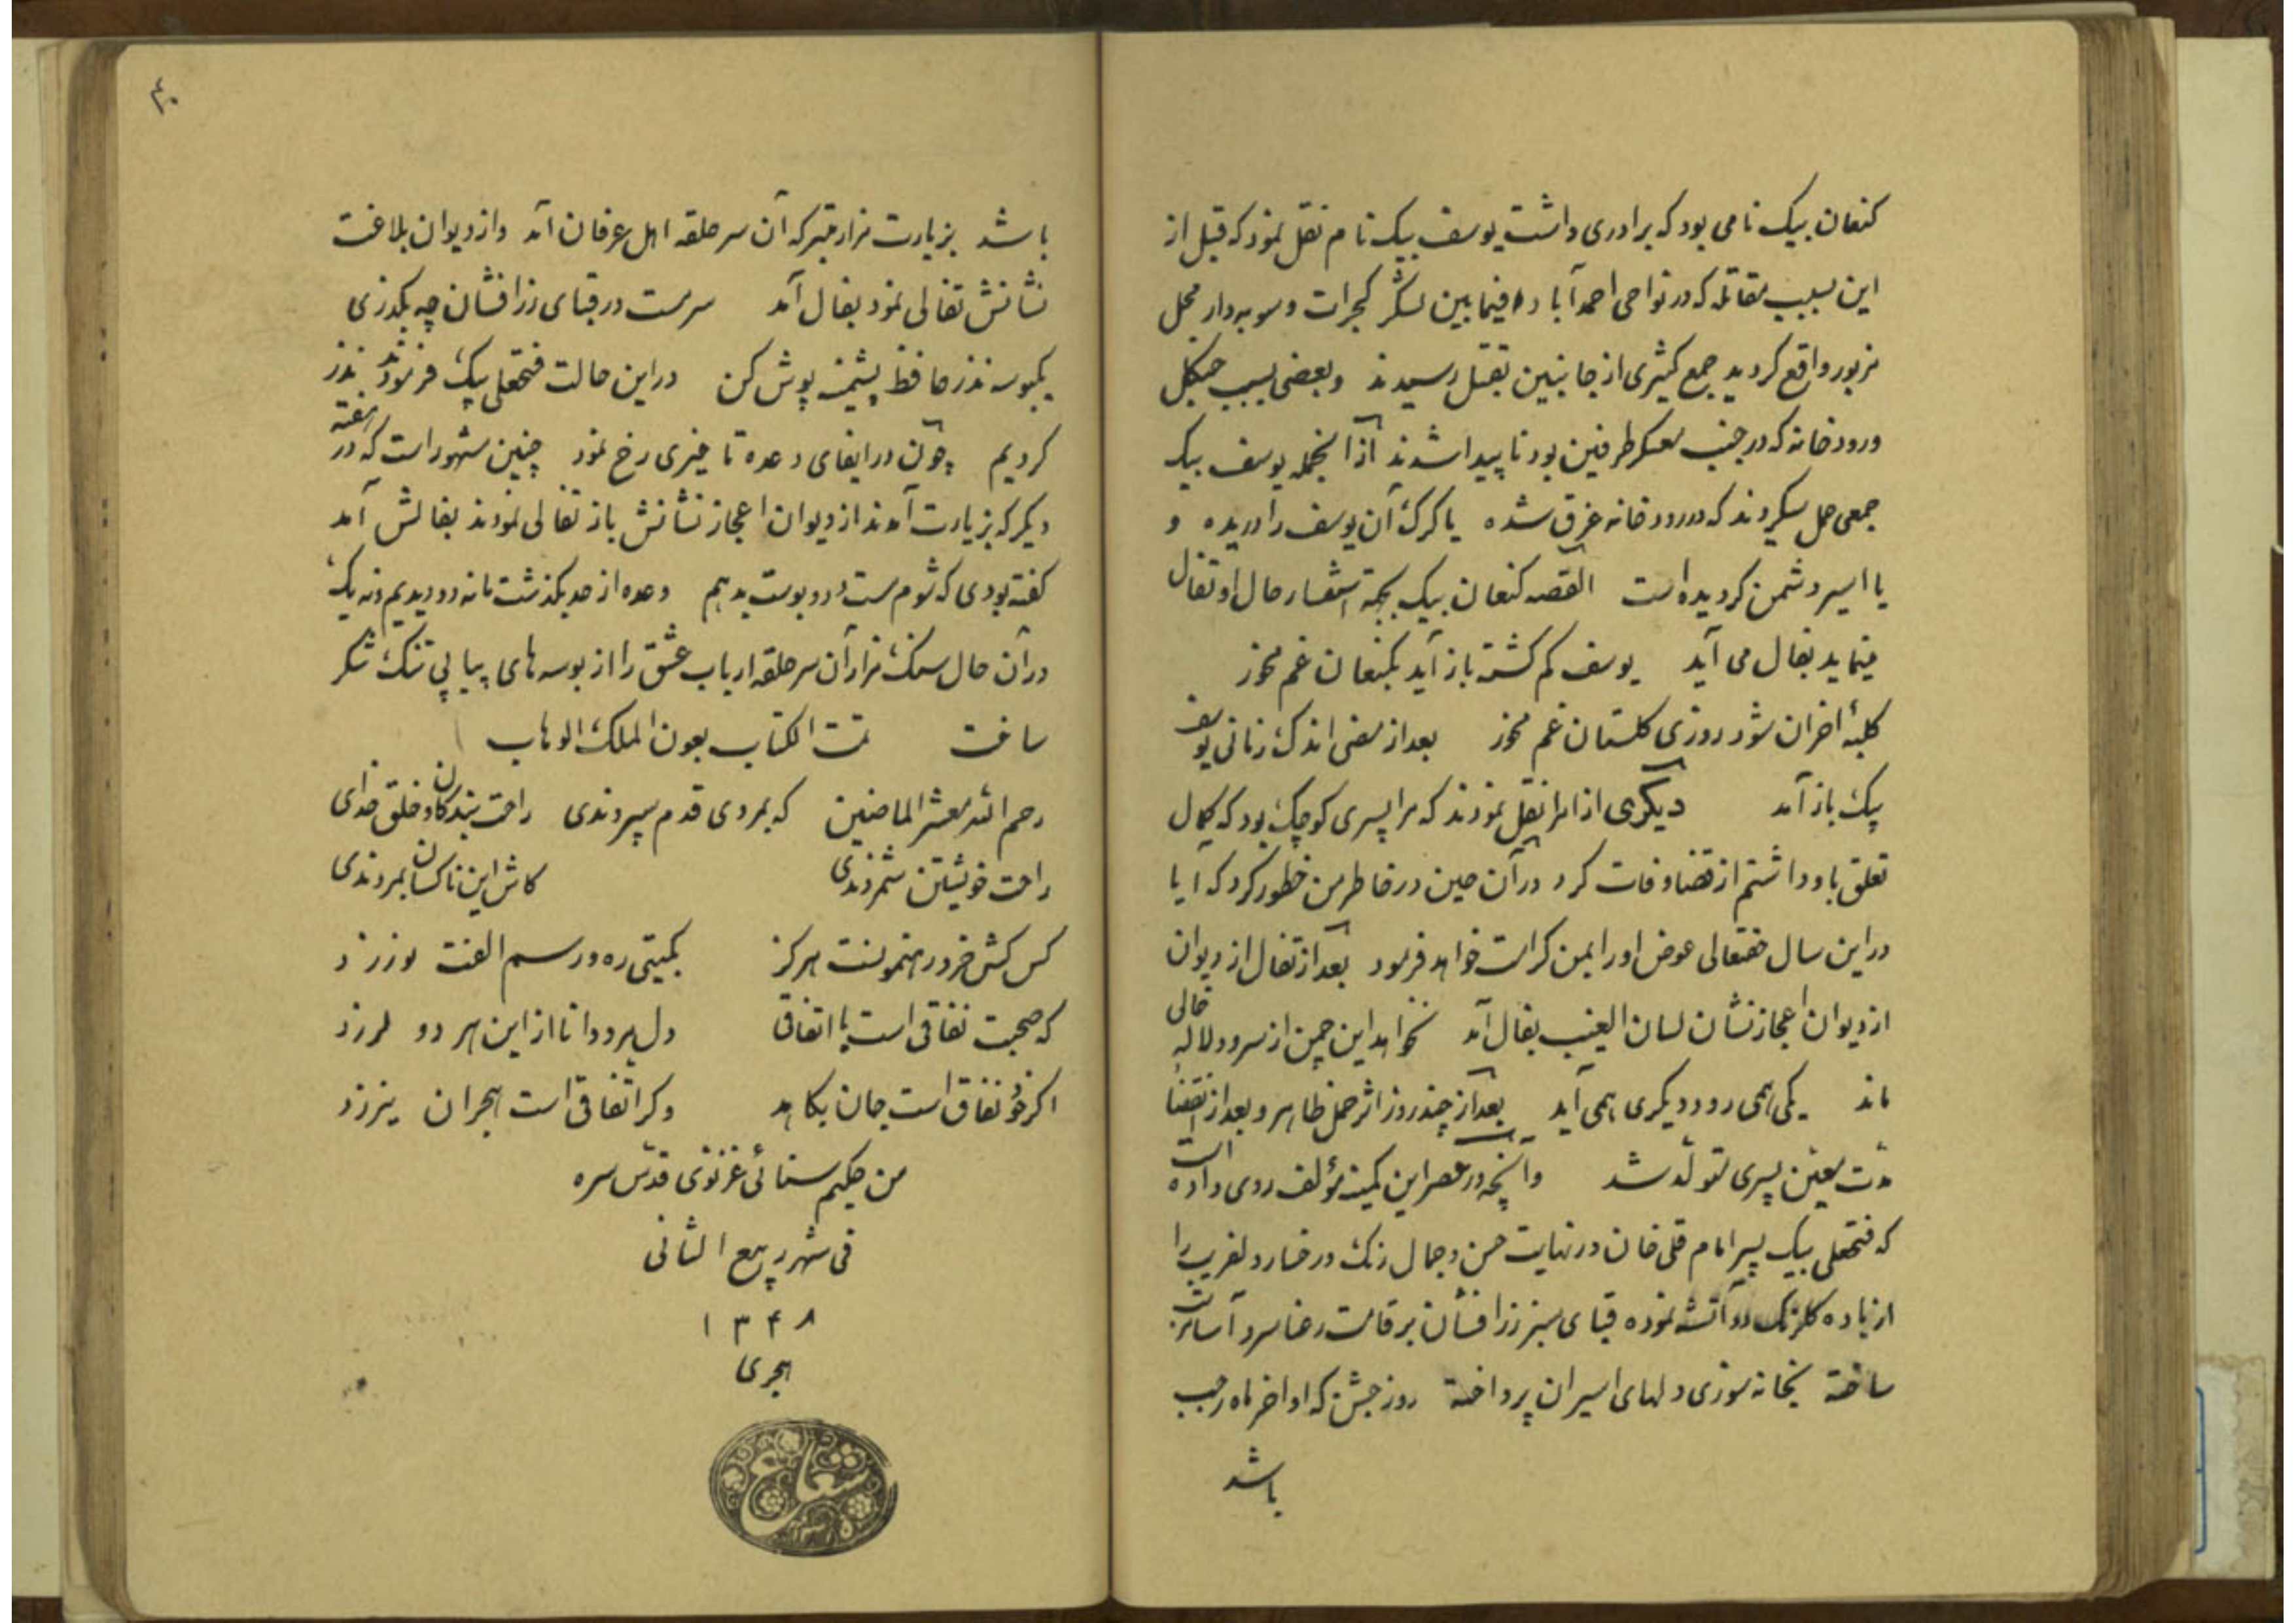 کنعان بیک نامی بود که برادری داشت یوسف بیک نام نقل نمود که قبل از
این بسبب مقاتله که در نواحی احمدآباد فیمابین لشکر کجرات و سوبه‌دار محل
مزبور واقع کردید جمع کثیری از جانبین بقتل رسیدند و بعضی بسبب جنکل
ورودخانه که در جنب معسکر طرفین بود ناپیدا شدند از آنجمله یوسف بیک
جمعی حمل میکردند که در رودخانه غرق شده یا کرک آن یوسف را دریده و
یا اسیر دشمن کردیده است القصه کنعان بیک بجهة استفسار حال او تفال
مینماید بفال می آید یوسف کم کشته باز آید بکنعان غم مخور
کلبهٔ احزان شود روزی کلستان غم مخور بعد از مضی اندک زمانی یوسف
بیک باز آمد دیکری از امرا نقل نمودند که مرا پسری کوچک بود که کمال
تعلق باو داشتم از قضا وفات کرد در آن حین در خاطر من خطور کرد که آیا
در این سال حقتعالی عوض او را بمن کرامت خواهد فرمود بعد از تفال از دیوان
از دیوان اعجاز نشان لسان الغیب بفال آمد نخواهد این چمن از سرو و لاله خالی
ماند یکی همی رود و دیکری همی آید بعد از چند روز اثر حمل ظاهر و بعد از انقضا
مدت معین پسری متولد شد و آنچه در عصر این کمینه مؤلف روی داده است
که فتحعلی بیک پسر امام قلی خان در نهایت حسن و جمال رنک و رخسار دلفریب را
از باده کلرنک دو آتشه نموده قبای سبز زرافشان بر قامت رعنا سرو آسا
ساخته بخانه سوزی دلهای اسیران پرداخته روز جشن که اواخر ماه رجب
باشد
۴۰
باشد بزیارت مزار متبرکه آن سرحلقه اهل عرفان آمد و از دیوان بلاغت
نشانش تفالی نمود بفال آمد سرمست در قبای زرافشان چه بکذری
یکبوسه نذر حافظ پشمینه پوش کن در این حالت فتحعلی بیک فرمودند نذر
کردیم چون در ایفای وعده تاخیری رخ نمود چنین مشهور است که در هفته
دیکر که بزیارت آمدند از دیوان اعجاز نشانش باز تفالی نمودند بفالش آمد
کفته بودی که شوم مست و دو بوست بدهم وعده از حد بکذشت ما نه دو دیدیم و نه یک
در آن حال سنک مزار آن سرحلقه ارباب عشق را از بوسه های پیاپی تنک شکر
ساخت تمت الکتاب بعون الملک الوهاب
رحم الله معشر الماضین که بمردی قدم سپردندی راحت بندکان و خلق خدای
راحت خویشتن شمردندی کاش این ناکسان بمردندی
کس کش خرد رهنمونست هرکز بکیتی ره و رسم الفت نورزد
که صحبت نفاقی است یا اتفاقی دل مرد دانا از این هر دو لرزد
اکر خود نفاق است جان بکاهد وکر اتفاقی است هجران نیرزد
من حکیم سنائی غزنوی قدس سره
فی شهر ربیع الثانی
۱۳۴۸
هجری
شعاع